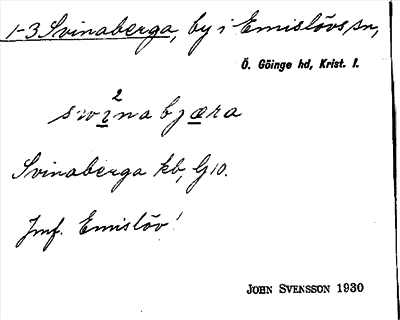 1-3 Svinaberga, by i Emislövs sn,
Ö. Göinge hd, Krist. l.
2
swinabjæra
Svinaberga kb, G10.
Jmf. Emislöv!
JOHN SVENSSON 1930